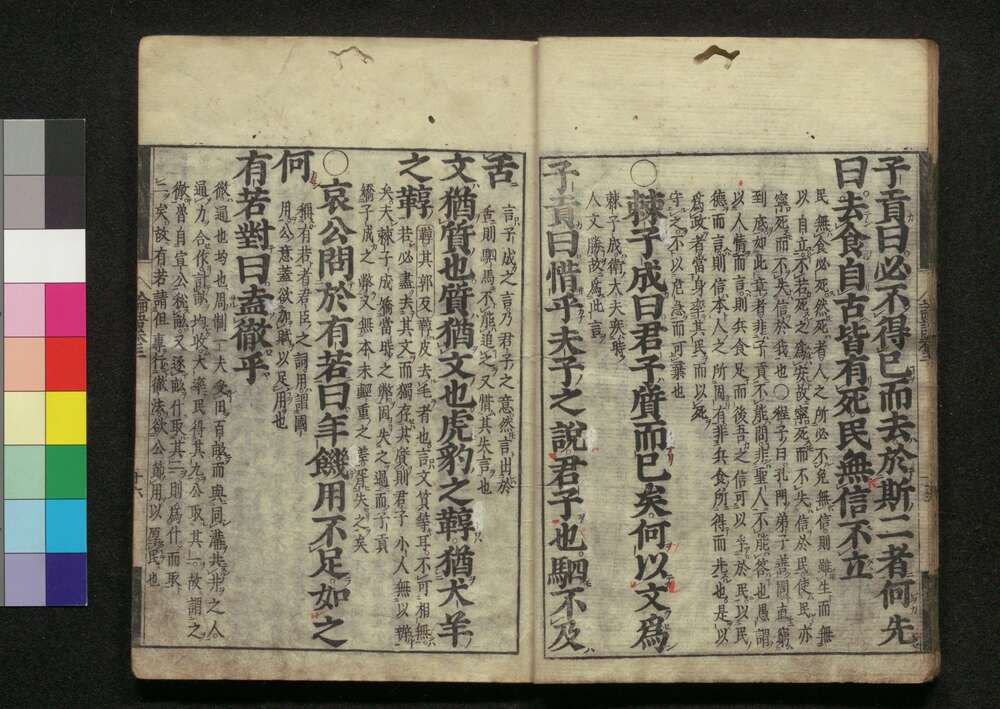 子貢曰必不得已而去於斯二者何先
曰去食自古皆有死民無信不立
民無食必死然死者人之所必不免無信則雖生而無
以自立不若死之爲安故寧死而不失信於民使民亦
寧死而不失信於我也○程子曰孔門弟子善問直窮
到底如此章者非子貢不能問非聖人不能答也愚謂
以人情而言則兵食足而後吾之信可以孚於民以民
德而言則信本人之所固有非兵食所得而先也是以
爲政者當身率其民而以死
守之不以危急而可棄也
○棘子成曰君子質而已矣何以文爲
棘子成衛大夫疾時
人文勝故爲此言
子貢曰惜乎夫子之說君子也駟不及
舌
言子成之言乃君子之意然言出於
舌則駟馬不能追之又惜其失言也
文猶質也質猶文也虎豹之鞟猶犬羊
之鞟
鞟其郭反鞟皮去毛者也言文質等耳不可相無
若必盡去其文而獨存其質則君子小人無以辨
矣夫棘子成矯當時之弊固失之過而子貢
矯子成之弊又無本末輕重之差胥失之矣
○哀公問於有若曰年饑用不足如之
何
稱有若者君臣之詞用謂國
用公意蓋欲加賦以足用也
有若對曰盍徹乎
徹通也均也周制一夫受田百畝而與同溝共井之人
通力合作計畝均收大率民得其九公取其一故謂之
徹魯自宣公稅畝又逐畝什取其一則爲什而取
二矣故有若請但專行徹法欲公節用以厚民也
論語卷三
十六